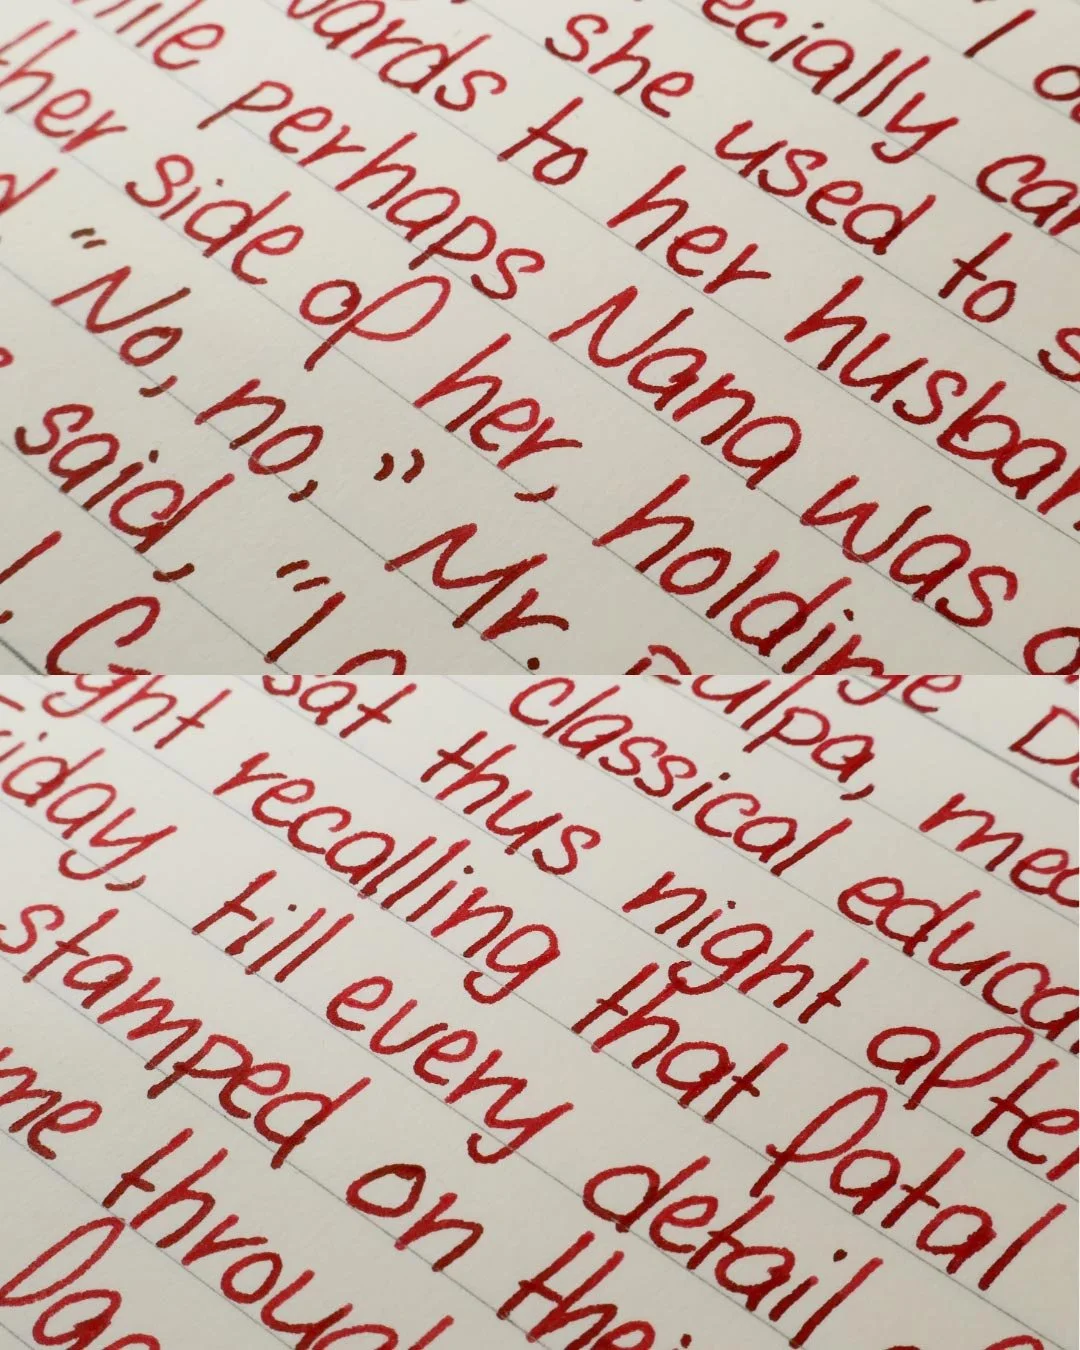 "I
ecially car
she used to s
wards to her husban
hile perhaps Nana was o
ther side of her, holding
"No, no," Mr.
said, "I
l. C
ge D
ulpa, mea
classical educa
sat thus night after
ght recalling that fatal
iday, till every detail
stamped on thei
me throug